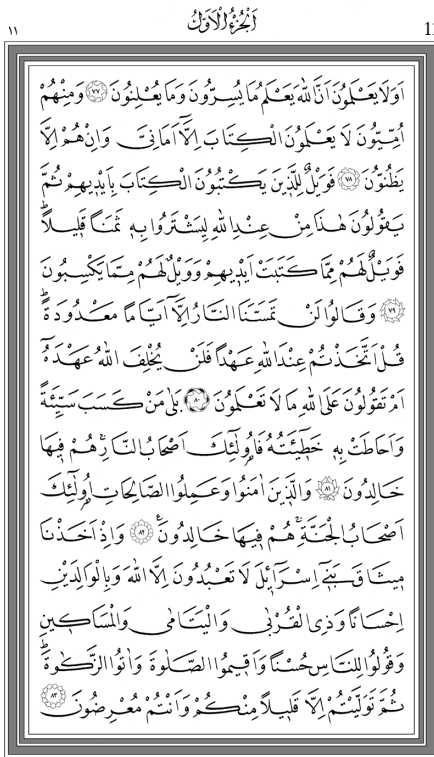 اَلْجُزْءُ الْاَوَّلُ
١١
اَوَلَا يَعْلَمُونَ اَنَّ اللّٰهَ يَعْلَمُ مَا يُسِرُّونَ وَمَا يُعْلِنُونَ ﴿٧٧﴾ وَمِنْهُمْ
اُمِّيُّونَ لَا يَعْلَمُونَ الْكِتَابَ اِلَّٓا اَمَانِيَّ وَاِنْ هُمْ اِلَّا
يَظُنُّونَ ﴿٧٨﴾ فَوَيْلٌ لِلَّذِينَ يَكْتُبُونَ الْكِتَابَ بِاَيْدِيهِمْ ثُمَّ
يَقُولُونَ هٰذَا مِنْ عِنْدِ اللّٰهِ لِيَشْتَرُوا بِهِ ثَمَنًا قَلِيلًاۜ
فَوَيْلٌ لَهُمْ مِمَّا كَتَبَتْ اَيْدِيهِمْ وَوَيْلٌ لَهُمْ مِمَّا يَكْسِبُونَ
﴿٧٩﴾ وَقَالُوا لَنْ تَمَسَّنَا النَّارُ اِلَّٓا اَيَّامًا مَعْدُودَةًۜ
قُلْ اَتَّخَذْتُمْ عِنْدَ اللّٰهِ عَهْدًا فَلَنْ يُخْلِفَ اللّٰهُ عَهْدَهُٓ
اَمْ تَقُولُونَ عَلَى اللّٰهِ مَا لَا تَعْلَمُونَ ﴿٨٠﴾ بَلٰى مَنْ كَسَبَ سَيِّئَةً
وَاَحَاطَتْ بِهِ خَطِٓيـَٔتُهُ فَاُو۬لٰٓئِكَ اَصْحَابُ النَّارِۚ هُمْ فِيهَا
خَالِدُونَ ﴿٨١﴾ وَالَّذِينَ اٰمَنُوا وَعَمِلُوا الصَّالِحَاتِ اُو۬لٰٓئِكَ
اَصْحَابُ الْجَنَّةِۚ هُمْ فِيهَا خَالِدُونَ۟ ﴿٨٢﴾ وَاِذْ اَخَذْنَا
مِيثَاقَ بَنِٓي اِسْرَٓائِلَ لَا تَعْبُدُونَ اِلَّا اللّٰهَ وَبِالْوَالِدَيْنِ
اِحْسَانًا وَذِي الْقُرْبٰى وَالْيَتَامٰى وَالْمَسَاكِينِ
وَقُولُوا لِلنَّاسِ حُسْنًا وَاَقِيمُوا الصَّلٰوةَ وَاٰتُوا الزَّكٰوةَۜ
ثُمَّ تَوَلَّيْتُمْ اِلَّا قَلِيلًا مِنْكُمْ وَاَنْتُمْ مُعْرِضُونَ ﴿٨٣﴾